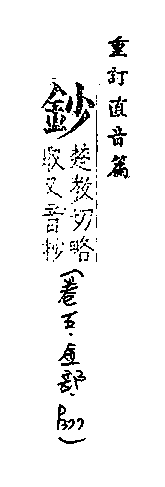 重訂直音篇
鈔
楚教切略
取又音抄
(卷五·金部·)